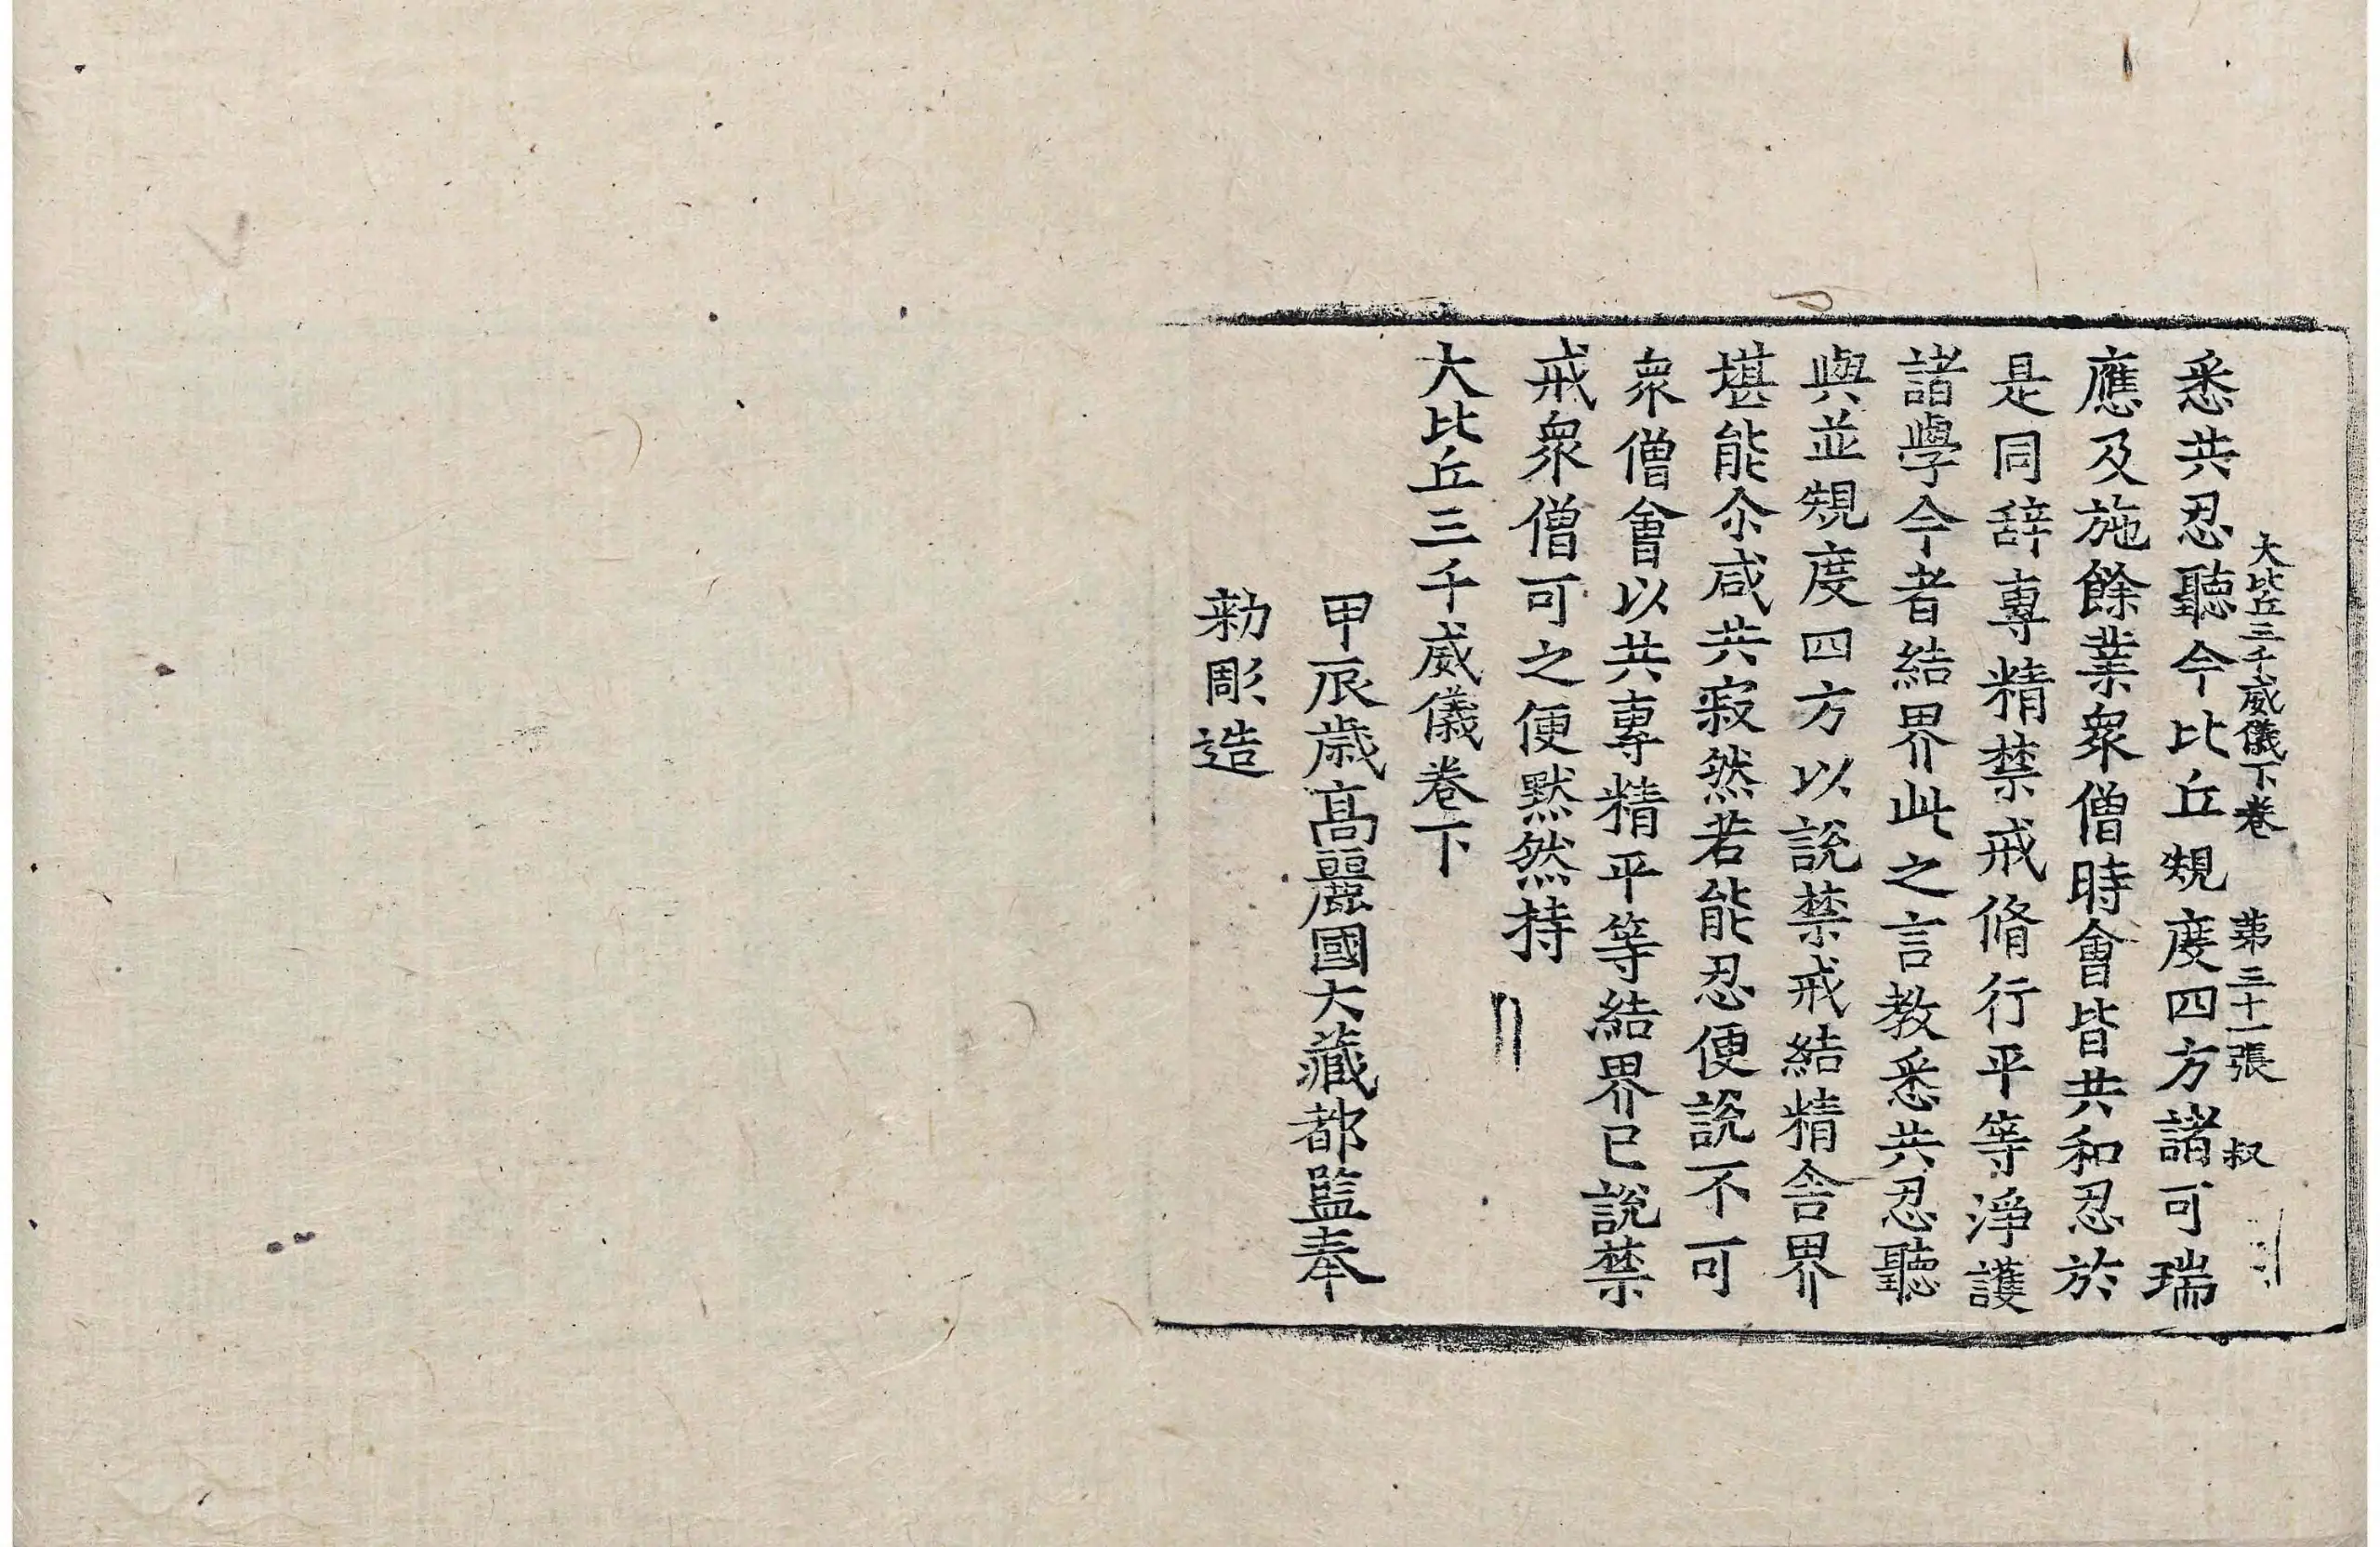 大比丘三千威儀下卷 第三十一張 叔
悉共忍聽今比丘䂓度四方諸可瑞
應及施餘業衆僧時會皆共和忍於
是同辞專精禁戒脩行平等淨護
諸學今者結界此之言教悉共忍聽
與並䂓度四方以說禁戒結精舍界
堪能尒咸共寂然若能忍便說不可
衆僧會以共專精平等結界已說禁
戒衆僧可之便默然持
大比丘三千威儀卷下
甲辰歲高麗國大藏都監奉
勑彫造